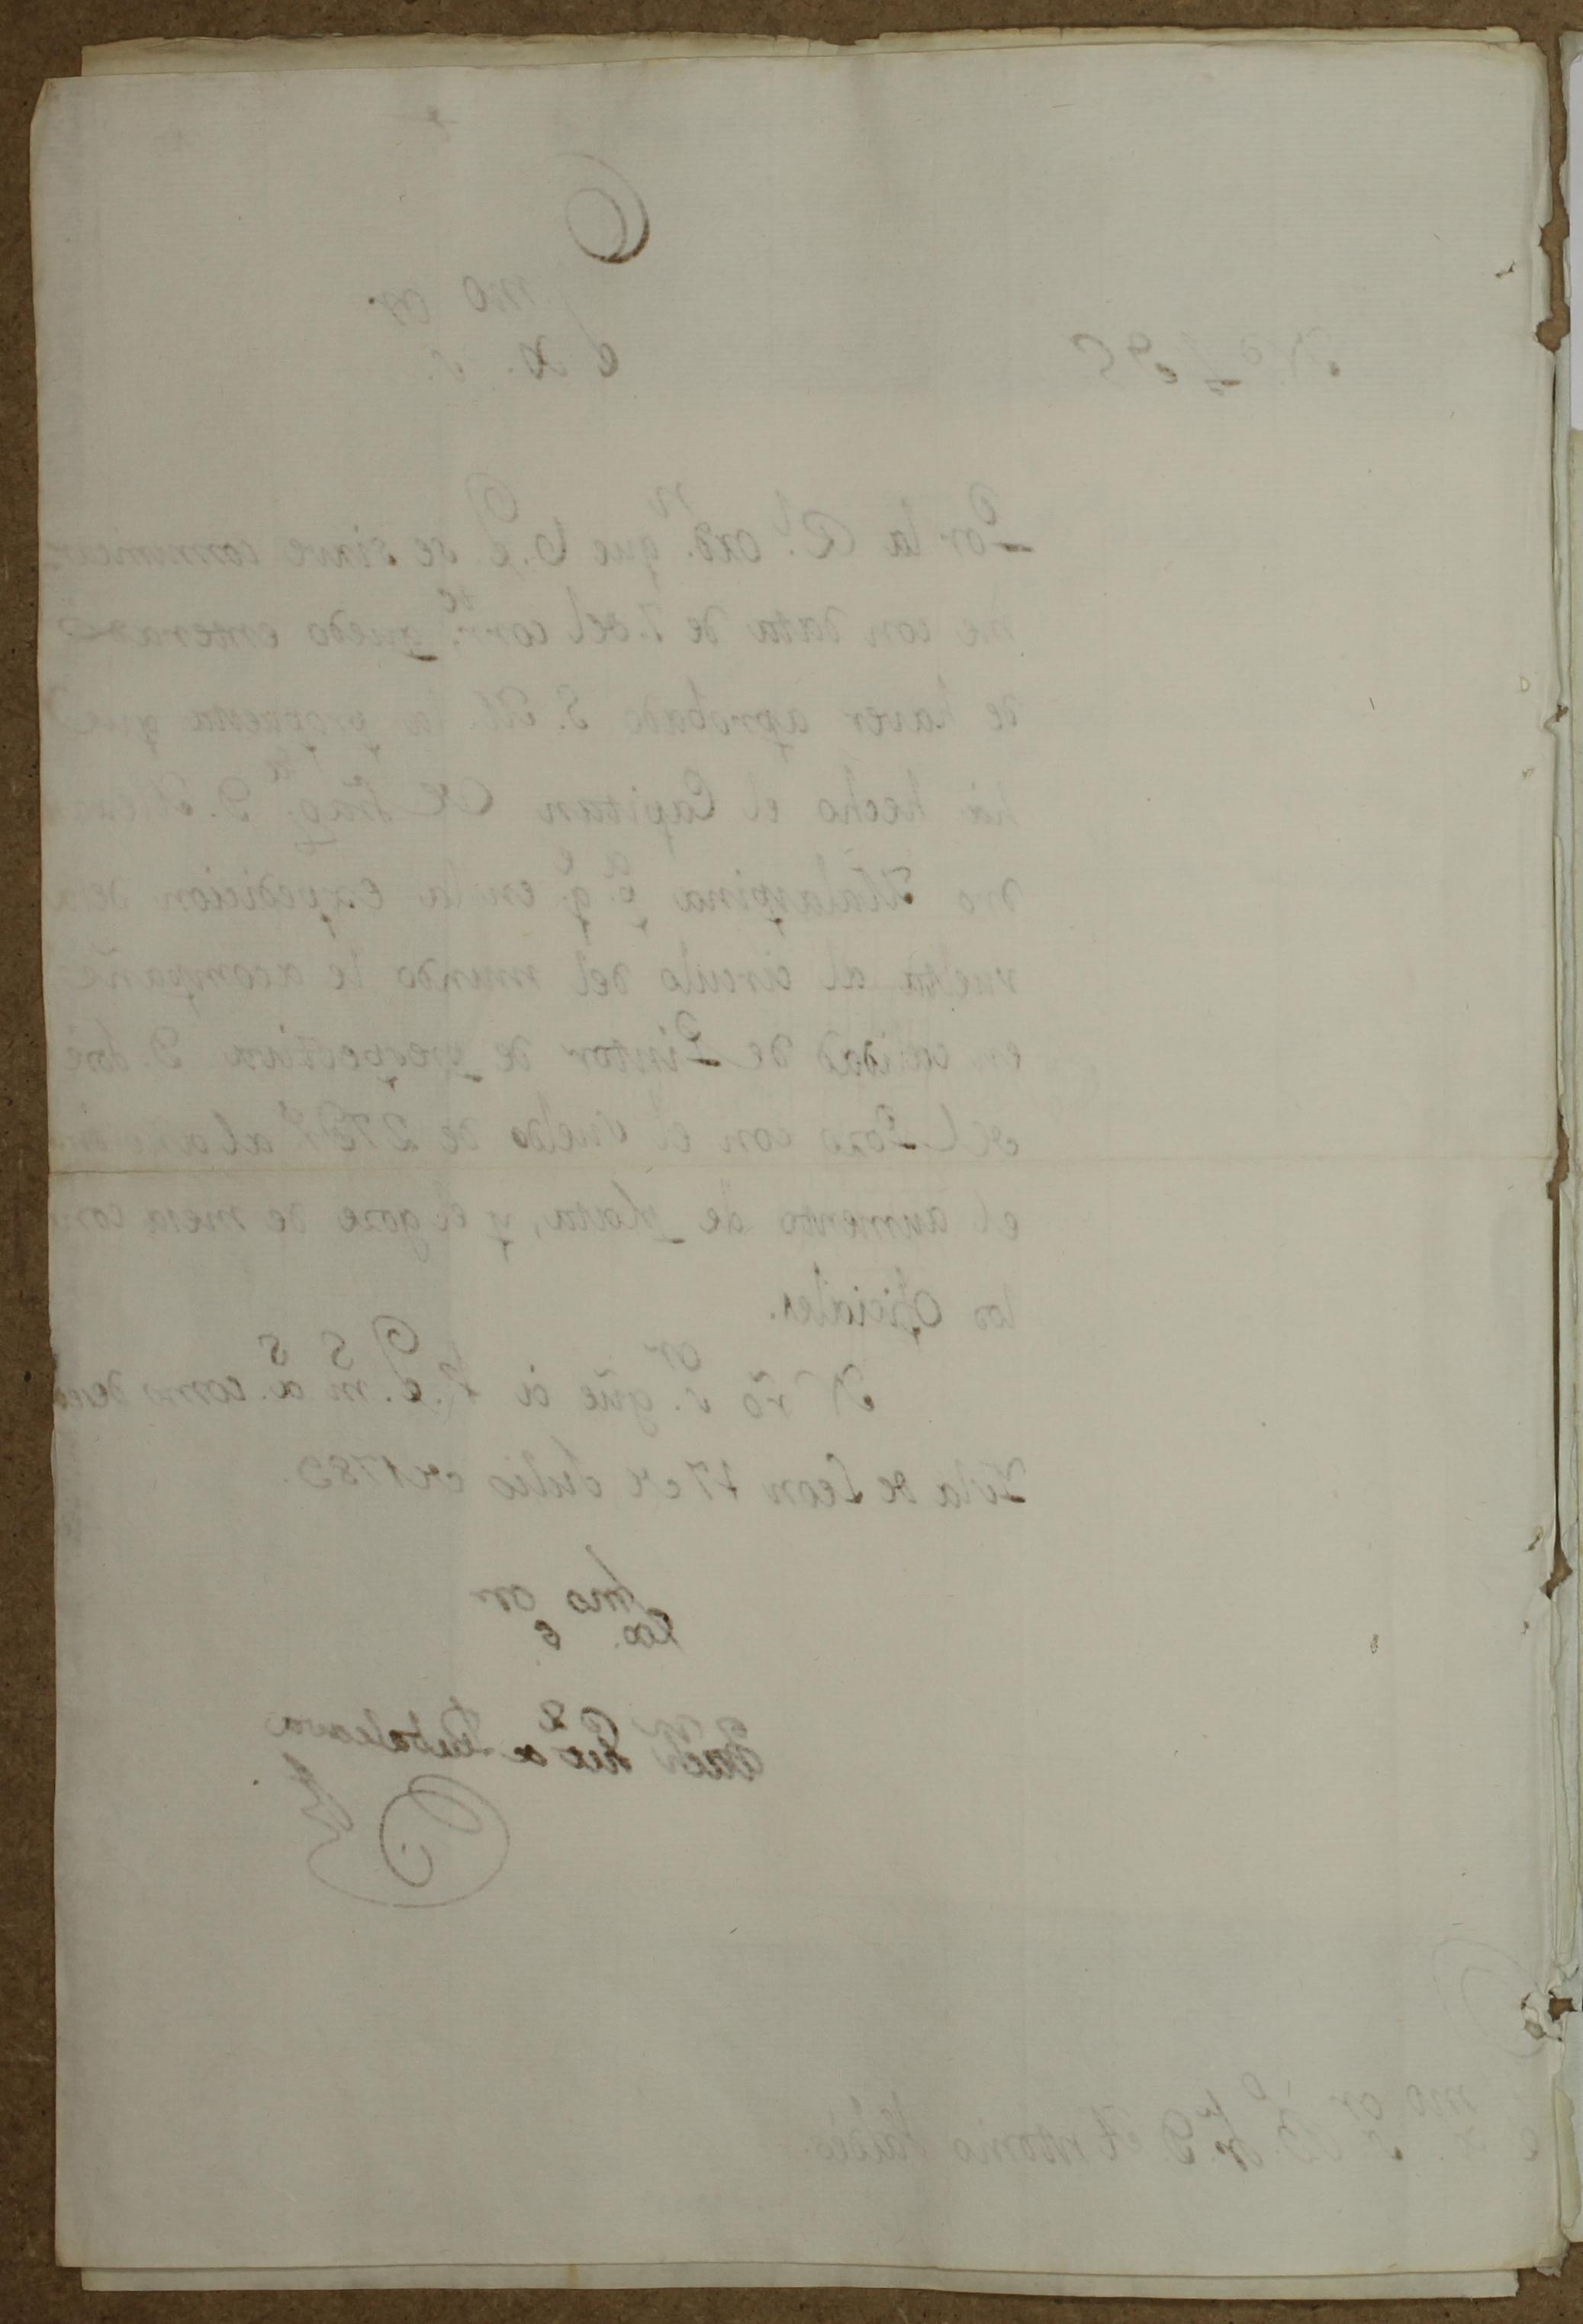 Exmo. Sor.
Por la Rl. ordn. que V.E. se sirve comunicar
me con data de 7. del corrte. quedo enterado
de haver aprobado S.M. la propuesta que
há hecho el Capitan de Fragte. D.
dro Malaspina pa. qe. en la expedicion dela
vuelta al circulo del mundo le acompañe
en calidad de Pintor de perspectiva D. José
del Pozo con el sueldo de al año
el aumento de plata, y el goze de mesa con
los Oficiales.
Nrō Sor. güe á V.E. ms. as. como
Isla de Leon 17 de Julio de 1789.
Exmo. Sor.
Exmo. Sor. Bo. Fr. Dn. Antonio Valdés.